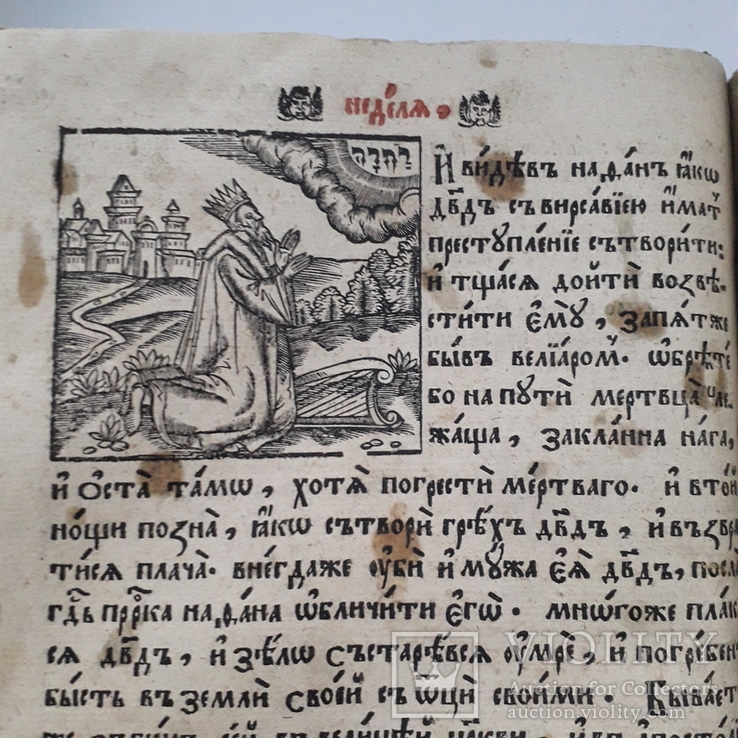 недѣлѧ.
И҆ ви́дѣвъ наѳа́нъ ꙗ҆́кѡ
дв҃дъ съ вирса́вїею и҆́мат
преступле́нїе сътвори́ти:
и҆ тща́сѧ дойтѝ возвѣ-
сти́ти є҆мꙋ̀, запѧ́т же
бы́въ велїа́ром. ѡ҆брѣ́те
бо на пꙋтѝ мертвца̀ ле-
жа́ща, закла́нна на́га,
и҆ ѡ҆ста̀ та́мѡ, хотѧ̀ погрестѝ ме́ртваго. и҆ в то́й
но́щи позна̀, ꙗ҆́кѡ сътворѝ грѣ́хъ дв҃дъ, и҆ възвра
ти́сѧ пла́чѧ. внегда́же ᲂу҆бѝ и҆ мꙋ́жа є҆ѧ̀ дв҃дъ, посла
гд҇ь прⷪ҇рка наѳа́на ѡ҆бличи́ти є҆го̀. мно́го же пла́к
сѧ дв҃дъ, и҆ ѕѣлѡ̀ състарѣ́всѧ ᲂу҆́мре, и҆ погребе́н
бы́сть въ землѝ свое́й съ ѻ҆ц҃ы̀ свои́ми. Быва́ет
VIOLITY
Auction for Collectors
auction.violity.com